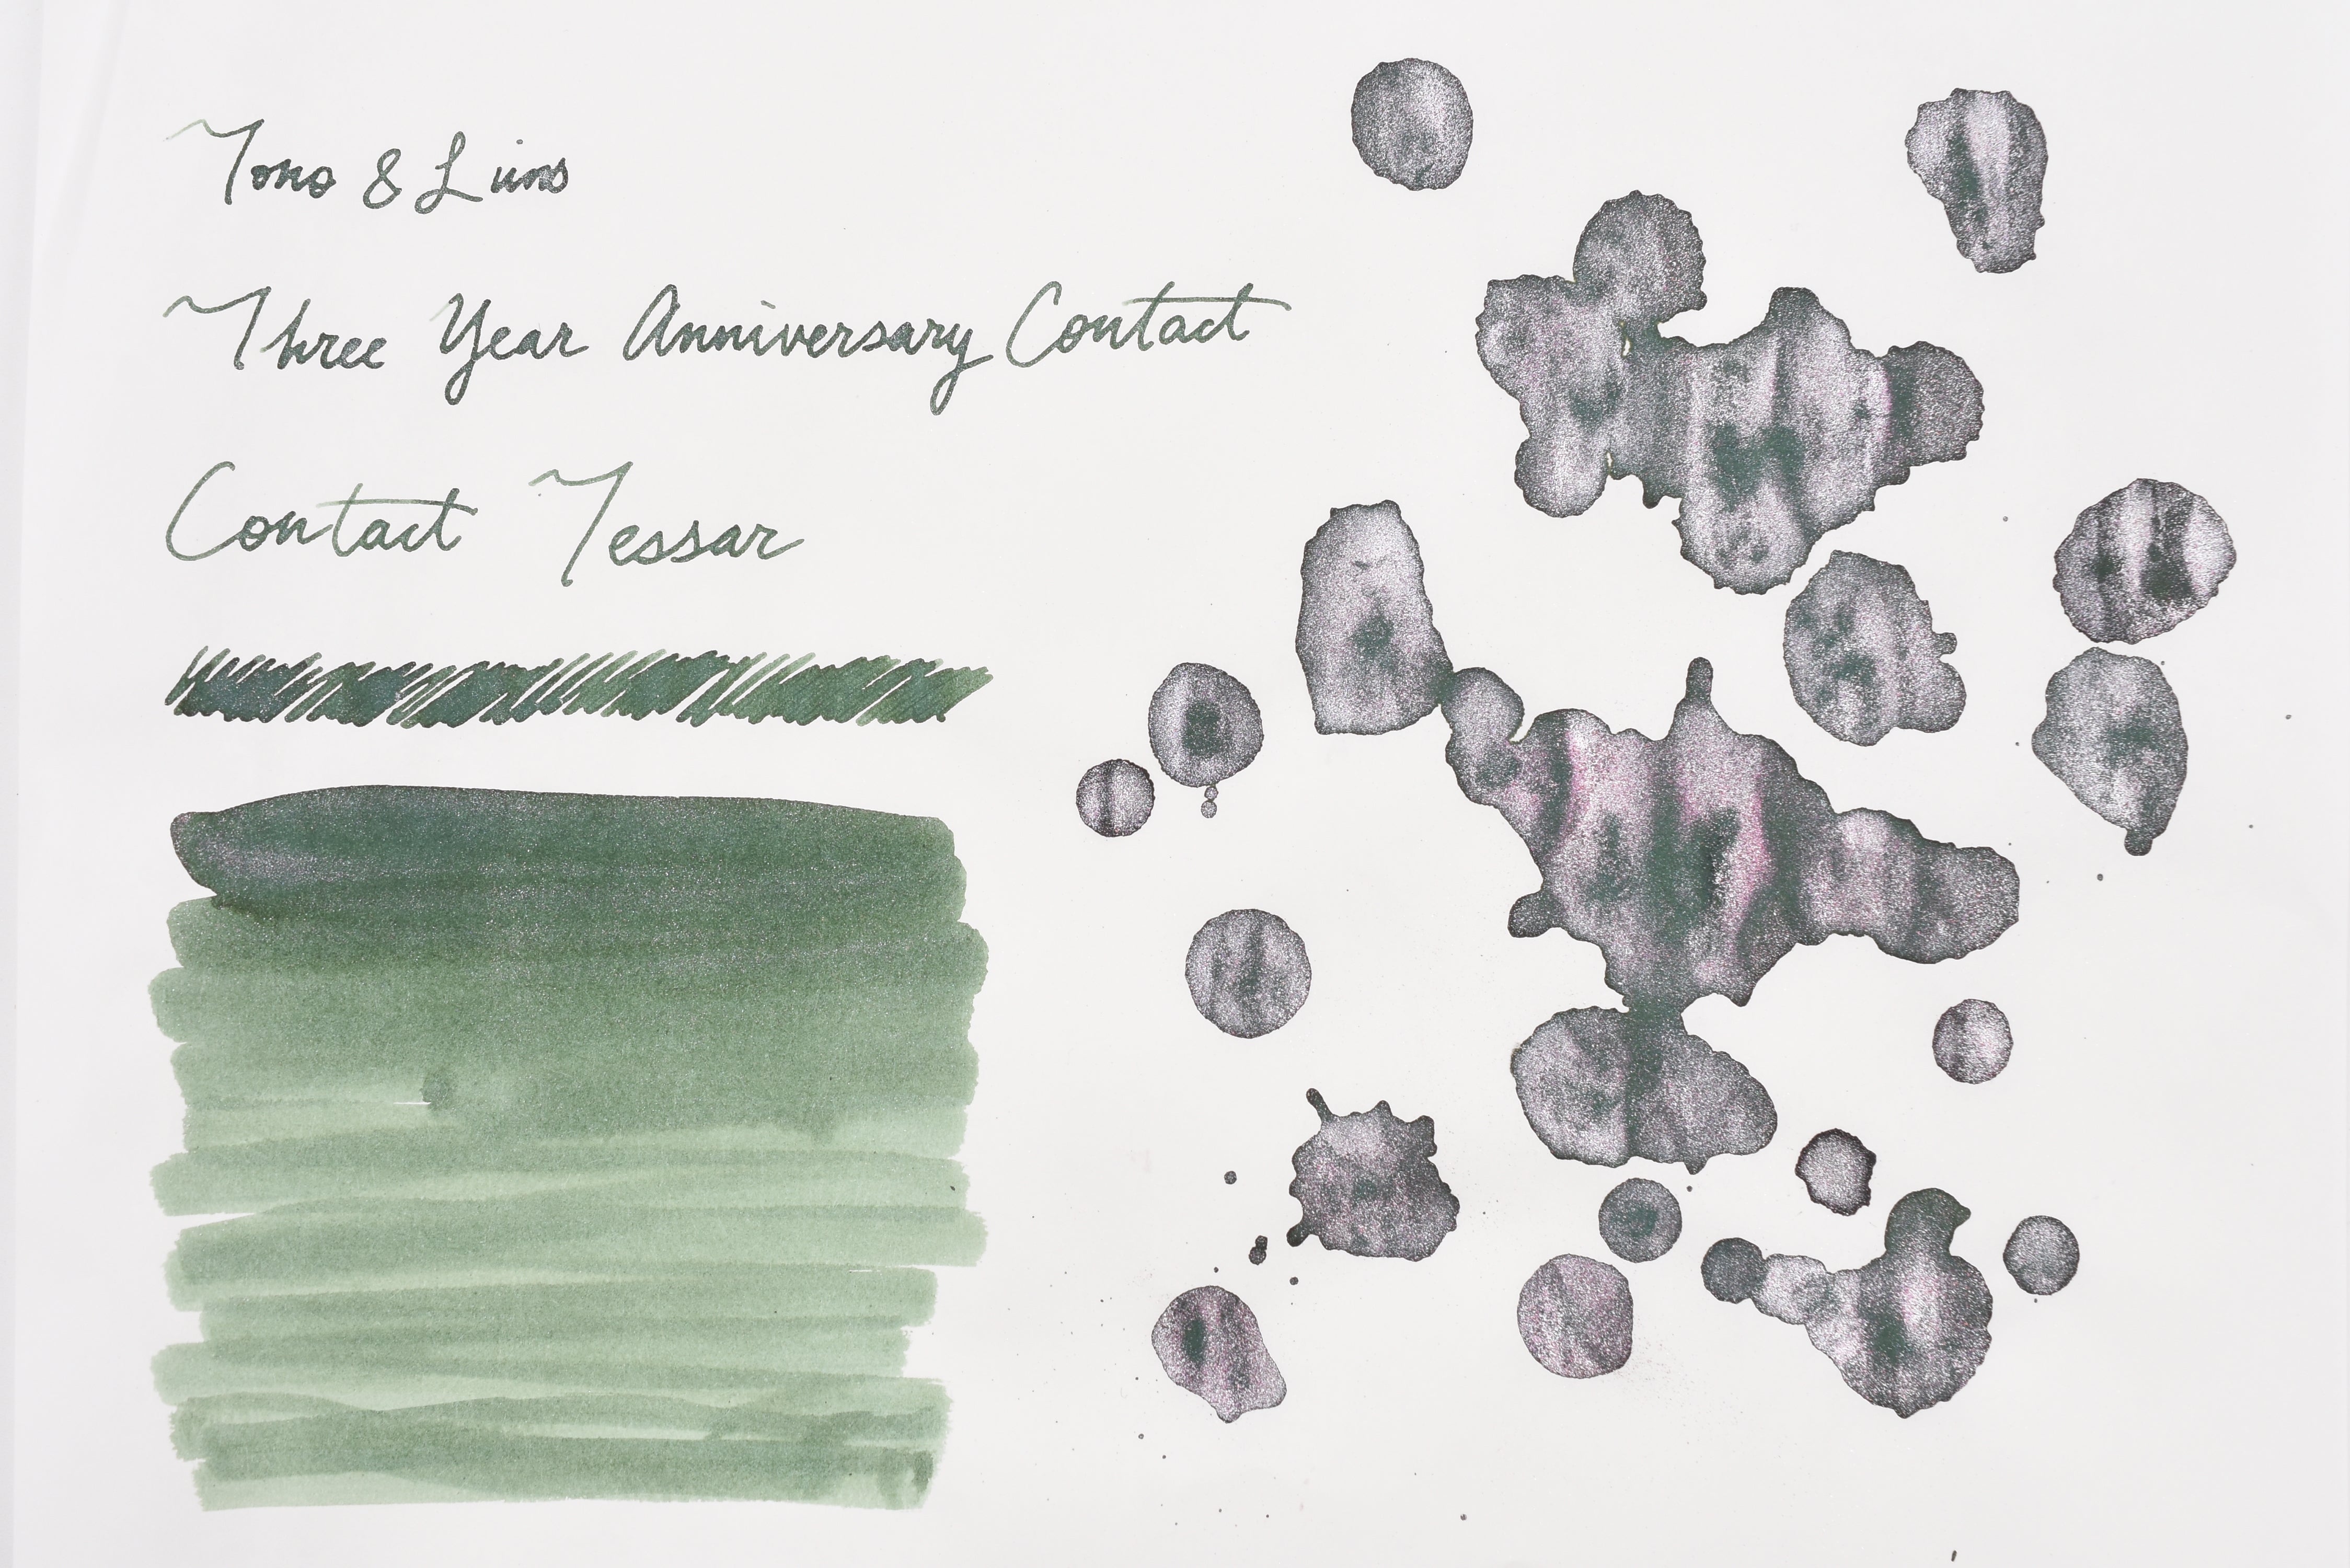 Tono & Lims
Three Year Anniversary Contact
Contact Tessar